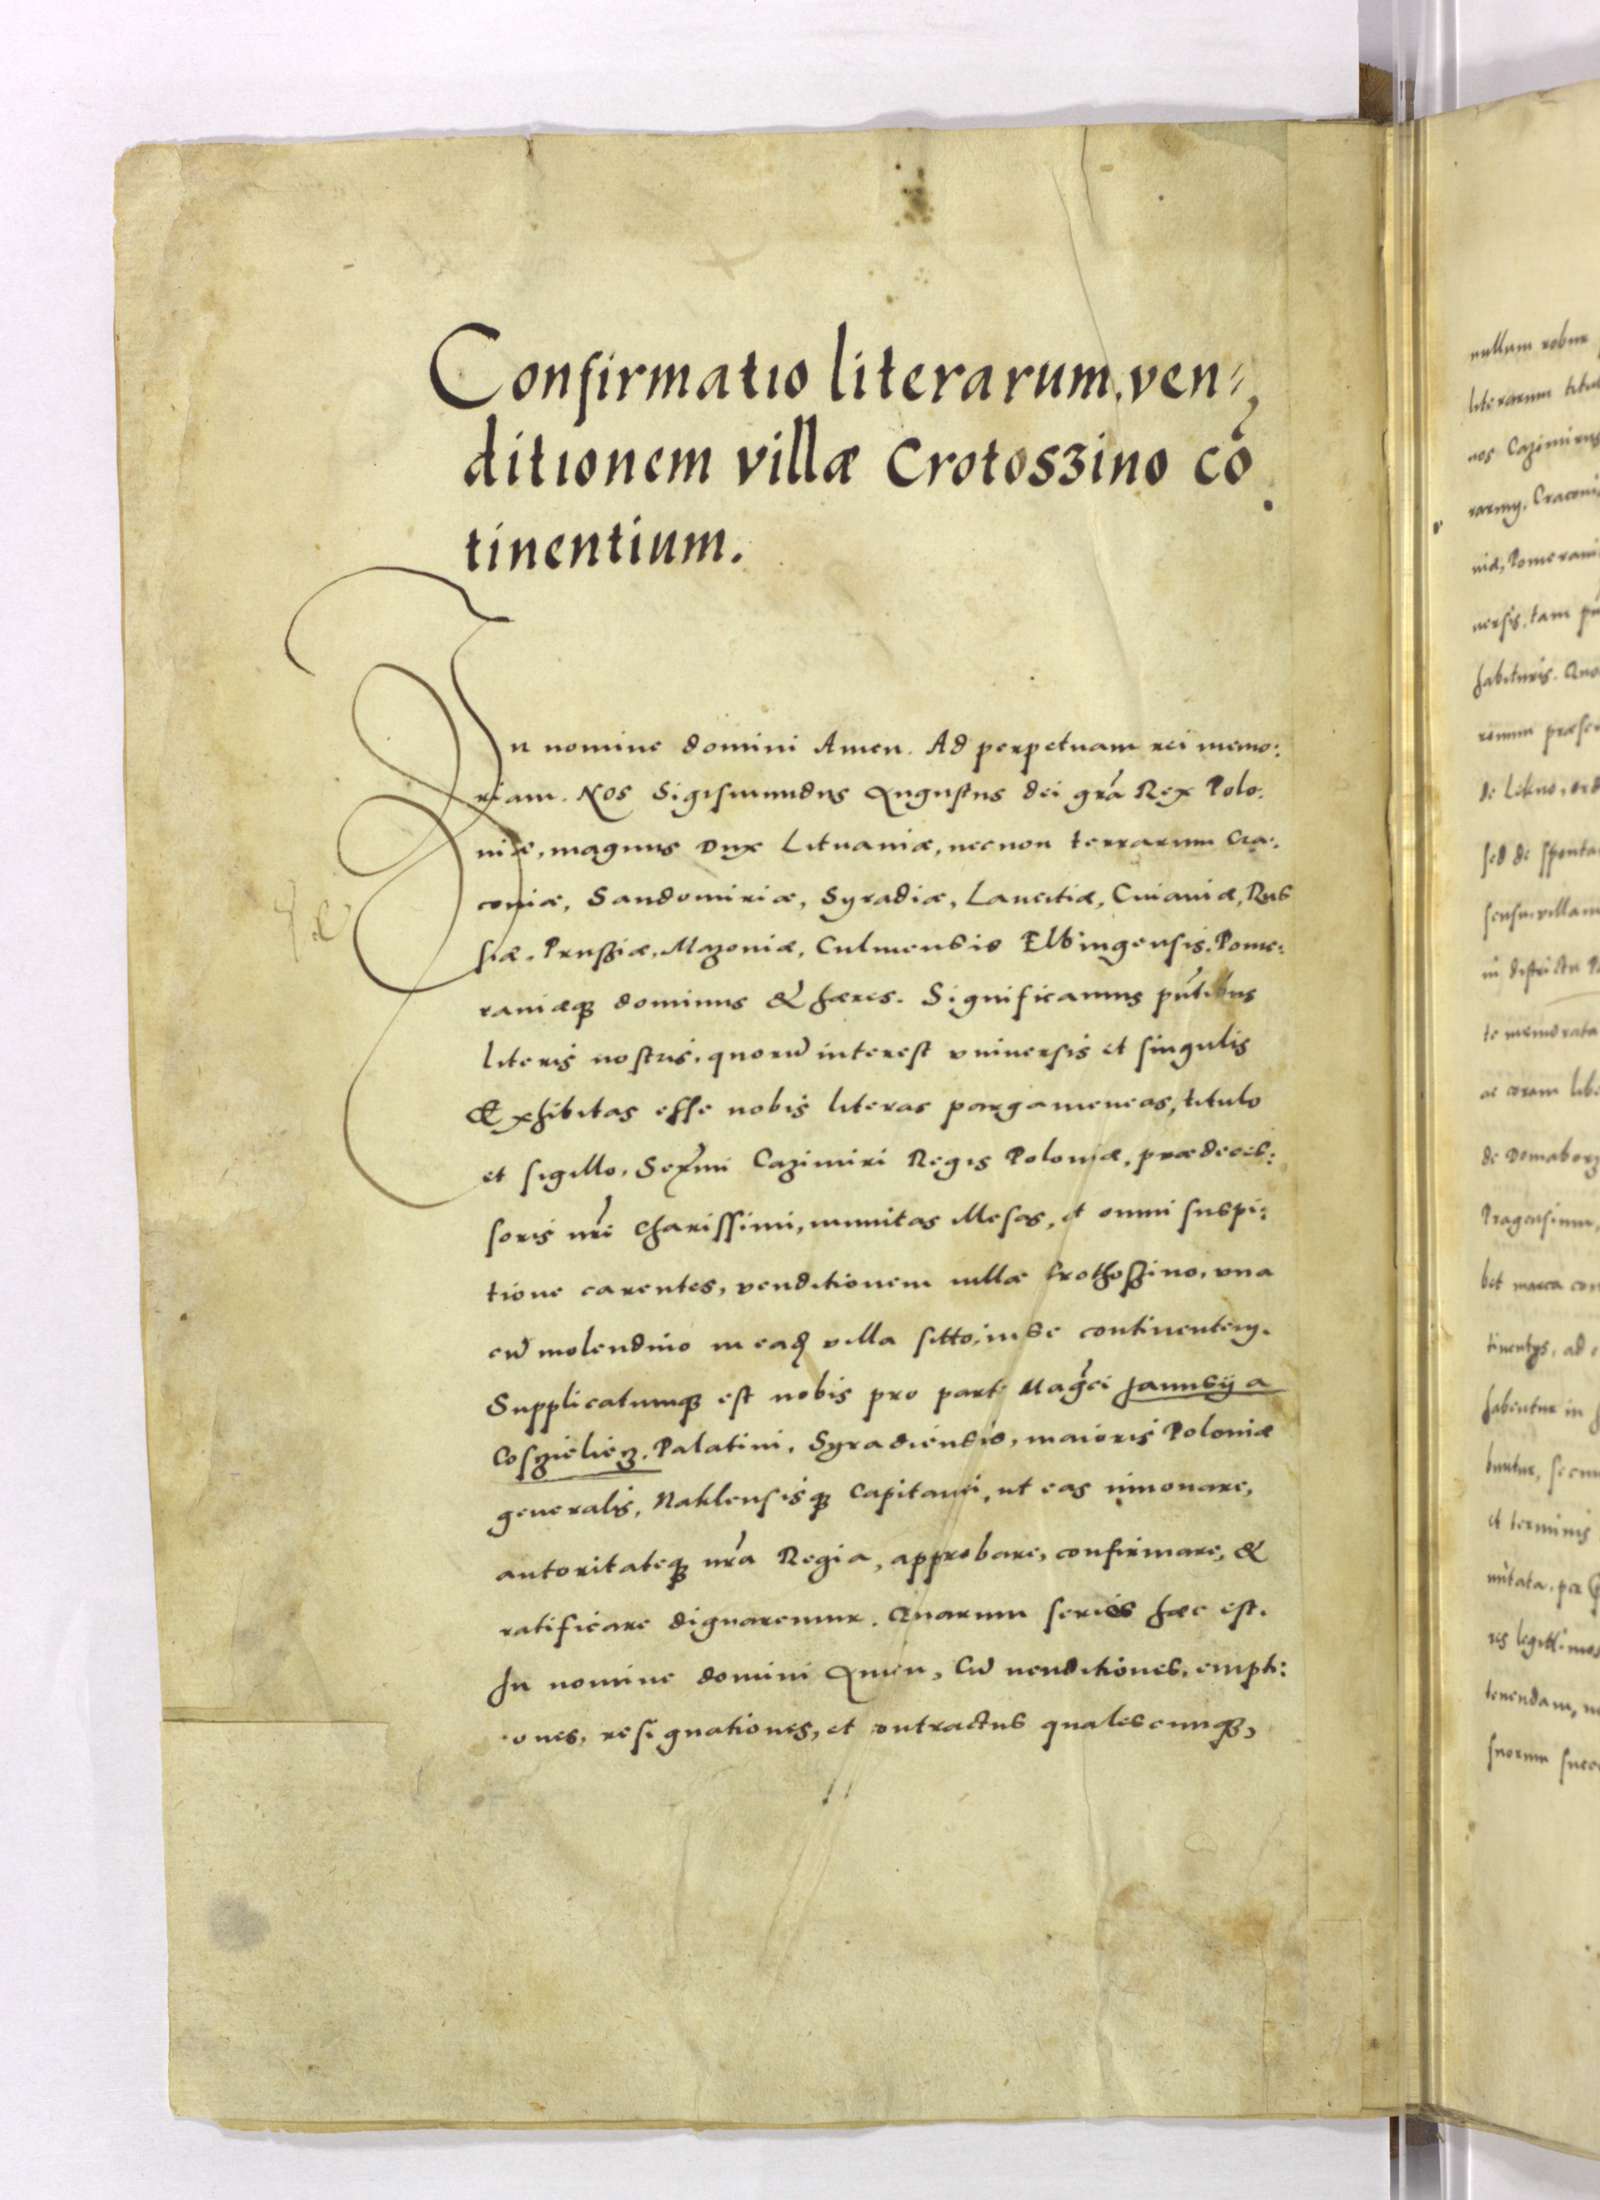 Confirmatio literarum, ven⸗
ditionem villæ Crotoszino cō
tinentium.
In nomine domini Amen. Ad perpetuam rei memo:
riam. Nos Sigismundus Augustus dei grã Rex Polo:
niæ, magnus Dux Lituaniæ, necnon terrarum Cra:
coniæ, Sandomiriæ, Syradiæ, Lancitiæ, Cuiauiæ, Rus
siæ, Prussiæ, Mazoniæ, Culmensis Elbingensis, Pome:
raniæq; dominus & hæres. Significamus pñtibus
literis nostris, quorũ interest vniuersis et singulis
Exhibitas esse nobis literas pargameneas, titulo
et sigillo, Serx̃mi Cazimiri Regis Poloniæ, prædeces:
soris nr̃i charissimi, munitas illesas, et omni suspi:
tione carentes, venditionem uillæ Crothoszino, vna
cũ molendino in eadẽ villa sitto, in se continentem.
Supplicatumq; est nobis pro parte Magc̃i Janusij a
Coszieliecz, Palatini, Syradiensis, maioris Poloniæ
generalis, Naklensisq; Capitanei, ut eas innouare,
autoritateq; nr̃a Regia, approbare, confirmare, &
ratificare dignaremur. Quarum series hæc est.
In nomine domini Amen, Cũ uenditiones, empti:
ones, resignationes, et contractus qualescunq;,
nullum robur
literarum titu
nos Cazimirus
rarumq; Craconi
niæ, Pomerani
uersis, tam
habituris. Quo
rum præsen
de
sed de sponta
sensu, villam
in districtu
te memorata
ac coram
de Domaborz
Pragensium,
bet marca con
tinentijs, ad
habentur in
buntur, secun
et terminis
mitata, per
res legittimos
tenendam,
suorum succe